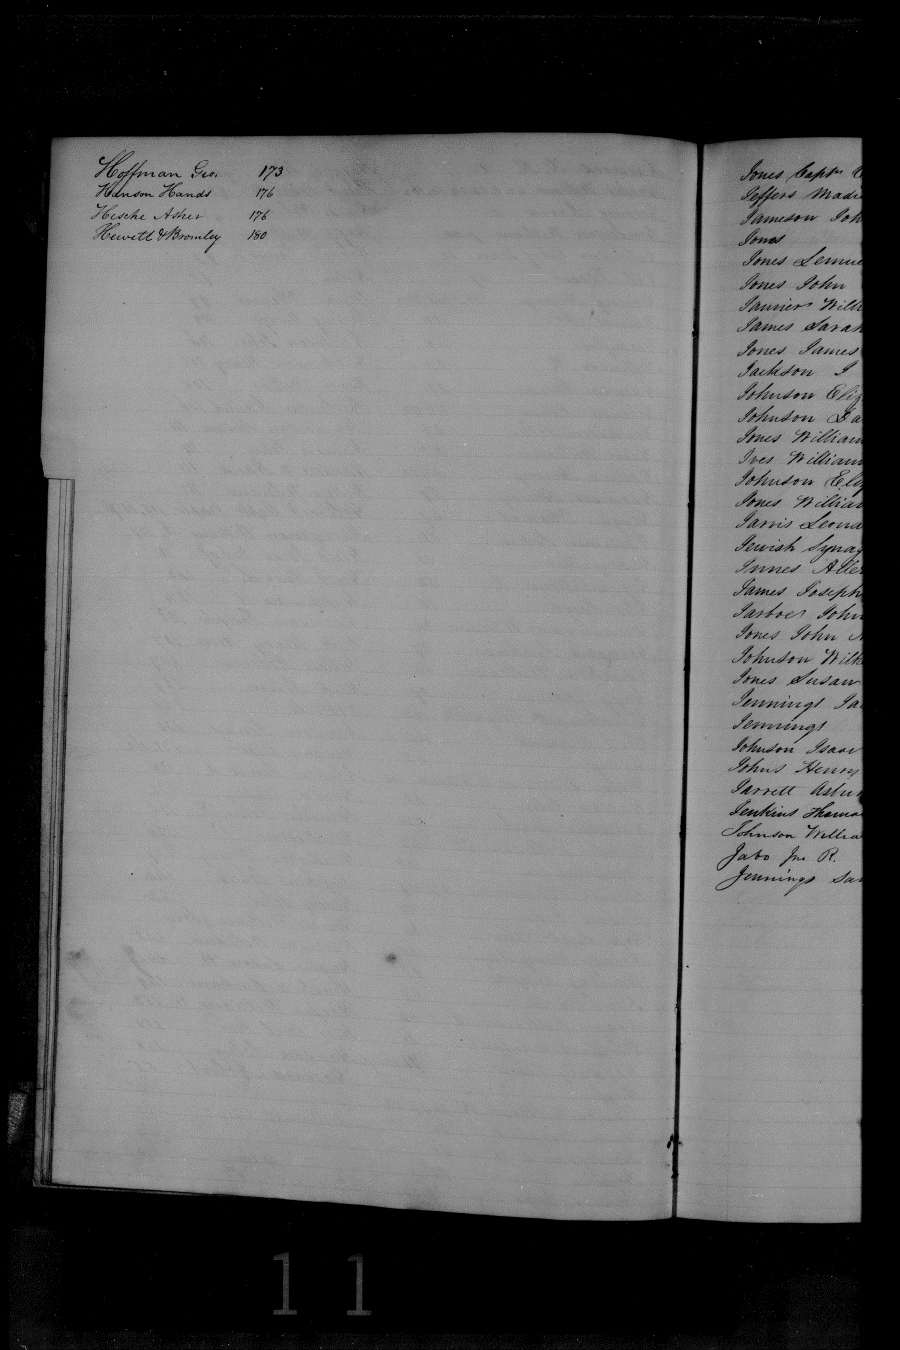 Hoffman Geo. 173
Hanson Hands 176
Hesche Asher 176
Hewett & Bromley 180
Jones Captn
Jeffers Madi
Jameson Joh
Jones
Jones Lemue
Jones John
Janner Willi
James Sarah
Jones James
Jackson J
Johnson Eliz
Johnson Ja
Jones William
Ives William
Johnson Eliz
Jones William
Jarvis Leona
Jewish Synag
Innes Alle
James Joseph
Jarboe John
Jones John
Johnson Willi
Jones Susan
Jennings Ja
Jennings
Johnson Isaac
Johns Henry
Jarrett Asbur
Jenkins Thoma
Johnson Willia
Jabo Jno R.
Jennings Sa
11